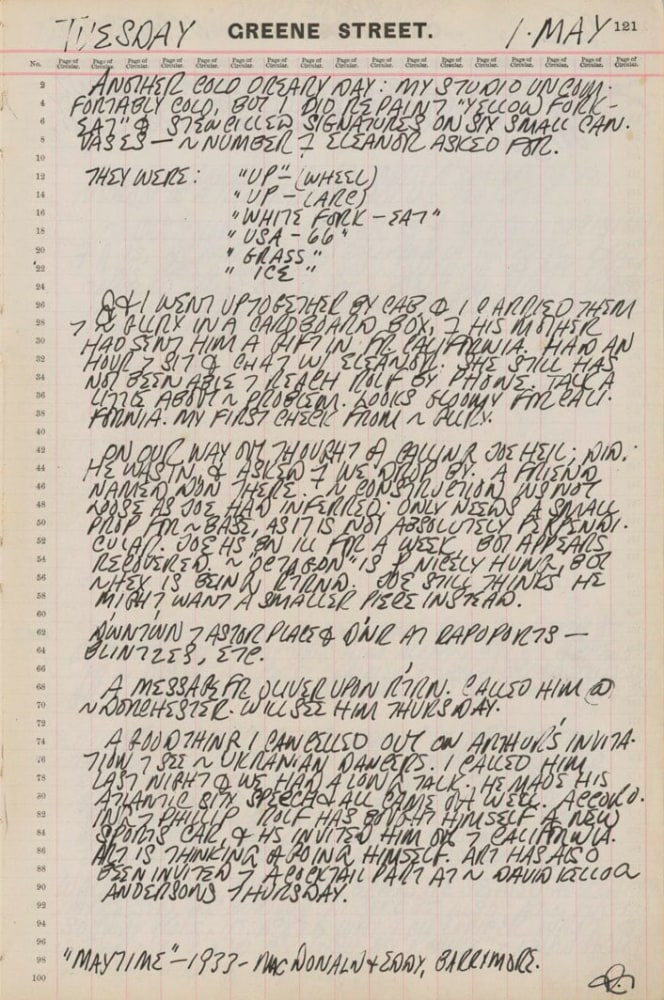 TUESDAY GREENE STREET. 1·MAY 121
No. Page of Circular. Page of Circular. Page of Circular. Page of Circular. Page of Circular. Page of Circular. Page of Circular. Page of Circular. Page of Circular. Page of Circular. Page of Circular. Page of Circular. Page of Circular. Page of Circular. Page of Circular.
2 ANOTHER COLD DREARY DAY: MY STUDIO UNCOM-
4 FORTABLY COLD, BUT I DID REPAINT "YELLOW FORK-
6 EAT" & STENCILLED SIGNATURES ON SIX SMALL CAN-
8 VASES — ~ NUMBER 7 ELEANOR ASKED FOR.
10
12 THEY WERE: "UP" - (WHEEL)
14 "UP - (ARC)
16 "WHITE FORK - EAT"
18 "USA - 66"
20 "GRASS"
22 "ICE"
24
26 & I WENT UP TOGETHER BY CAB & I CARRIED THEM
28 7 ~ GLLRY IN A CARDBOARD BOX, 7 HIS MOTHER
30 HAD SENT HIM A GIFT IN FR CALIFORNIA. HAD AN
32 HOUR 7 SIT & CHAT W/ ELEANOR. SHE STILL HAS
34 NOT BEEN ABLE 7 REACH ROLF BY PHONE. TALK A
36 LITTLE ABOUT ~ PROBLEM. LOOKS GLOOMY FOR CALI-
38 FORNIA. MY FIRST CHECK FROM ~ GLLRY.
40
42 ON OUR WAY OUT THOUGHT OF CALLING JOE HEIL; DID.
44 HE WAS IN, & ASKED 7 WE DROP BY. A FRIEND
46 NAMED DON THERE. ~ CONSTRUCTION WS NOT
48 LOOSE AS JOE HAD INFERRED: ONLY NEEDS A SMALL
50 PROP FOR ~ BASE, AS IT IS NOT ABSOLUTELY PERPENDI-
52 CULAR. JOE HS BN ILL FOR A WEEK, BUT APPEARS
54 RECOVERED. ~ "OCTAGON" IS NICELY HUNG, BUT
56 ~ HEX IS BEING RTRND. JOE STILL THINKS HE
58 MIGHT WANT A SMALLER PIECE INSTEAD.
60
62 DWNTWN 7 ASTOR PLACE & DNR AT RAPOPORTS —
64 BLINTZES, ETC.
66
68 A MESSAGE FR OLIVER UPON RTRN. CALLED HIM @
70 ~ DORCHESTER. WILL SEE HIM THURSDAY.
72
74 A GOOD THING I CANCELLED OUT ON ARTHUR'S INVITA-
76 TION 7 SEE ~ UKRANIAN DANCERS. I CALLED HIM
78 LAST NIGHT & WE HAD A LONG TALK. HE MADE HIS
80 ATLANTIC CITY SPEECH & ALL CAME OFF WELL. ACCORD-
82 ING 7 PHILLIP, ROLF HAS BOUGHT HIMSELF A NEW
84 SPORTS CAR, & HS INVITED HIM OUT 7 CALIFORNIA.
86 ART IS THINKING OF GOING HIMSELF. ART HAS ALSO
88 BEEN INVITED 7 A COCKTAIL PART AT ~ DAVID KELLOGG
90 ANDERSONS THURSDAY.
92
94
96
98 "MAYTIME" - 1933 - MACDONALD & EDDY, BARRYMORE.
100